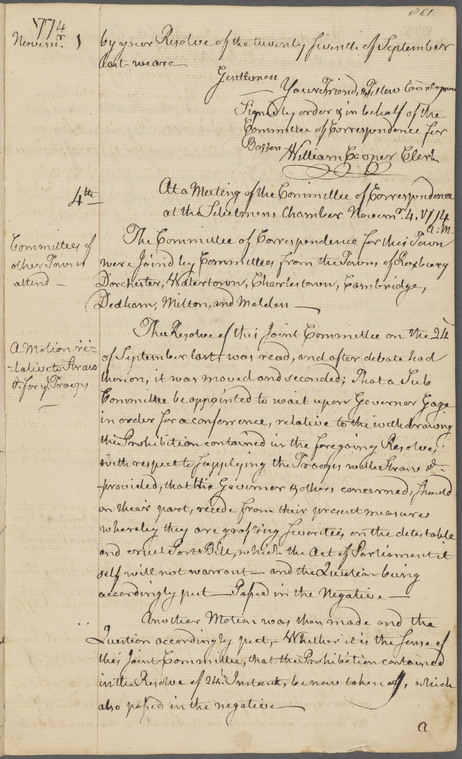 1774
Novemr. 1
by your Resolve of the twenty seventh of September
last we are
Gentlemen
Your Friends, & Fellow Countrymen
Signed by order & in behalf of the
Committee of Correspondence for
Boston
William Cooper Clerk
4th
At a Meeting of the Committee of Correspondence
at the Selectmens Chamber Novemr. 4. 1774
A:M.
Committees of
other Towns
attend
The Committee of Correspondence for this Town
were Joined by Committees from the Towns of Roxbury
Dorchester, Watertown, Charlestown, Cambridge,
Dedham, Milton, and Malden
A Motion re-
lative to Straw
& for ye. Troops
The Resolve of this Joint Committee on the 24
of September last was read, and after debate had
thereon, it was moved and seconded; That a Sub
Committee be appointed to wait upon Governor Gage
in order for a conference, relative to the withdrawing
the Prohibition contained in the foregoing Resolve,
with respect to supplying the Troops with Straw &c.
provided, that the Governor & others concerned, should
on their part, recede from their present measures
whereby they are grossing severities, on the detestable
and cruel Port Bill, which the Act of Parliament it
self will not warrant — and the Question being
accordingly put — Passed in the Negative —
Another Motion was then made and the
Question accordingly put, — Whether it is the Sense of
this Joint Committee, that the Prohibition contained
in the Resolve of 24: Instant, be now taken off, which
also passed in the negative —
a